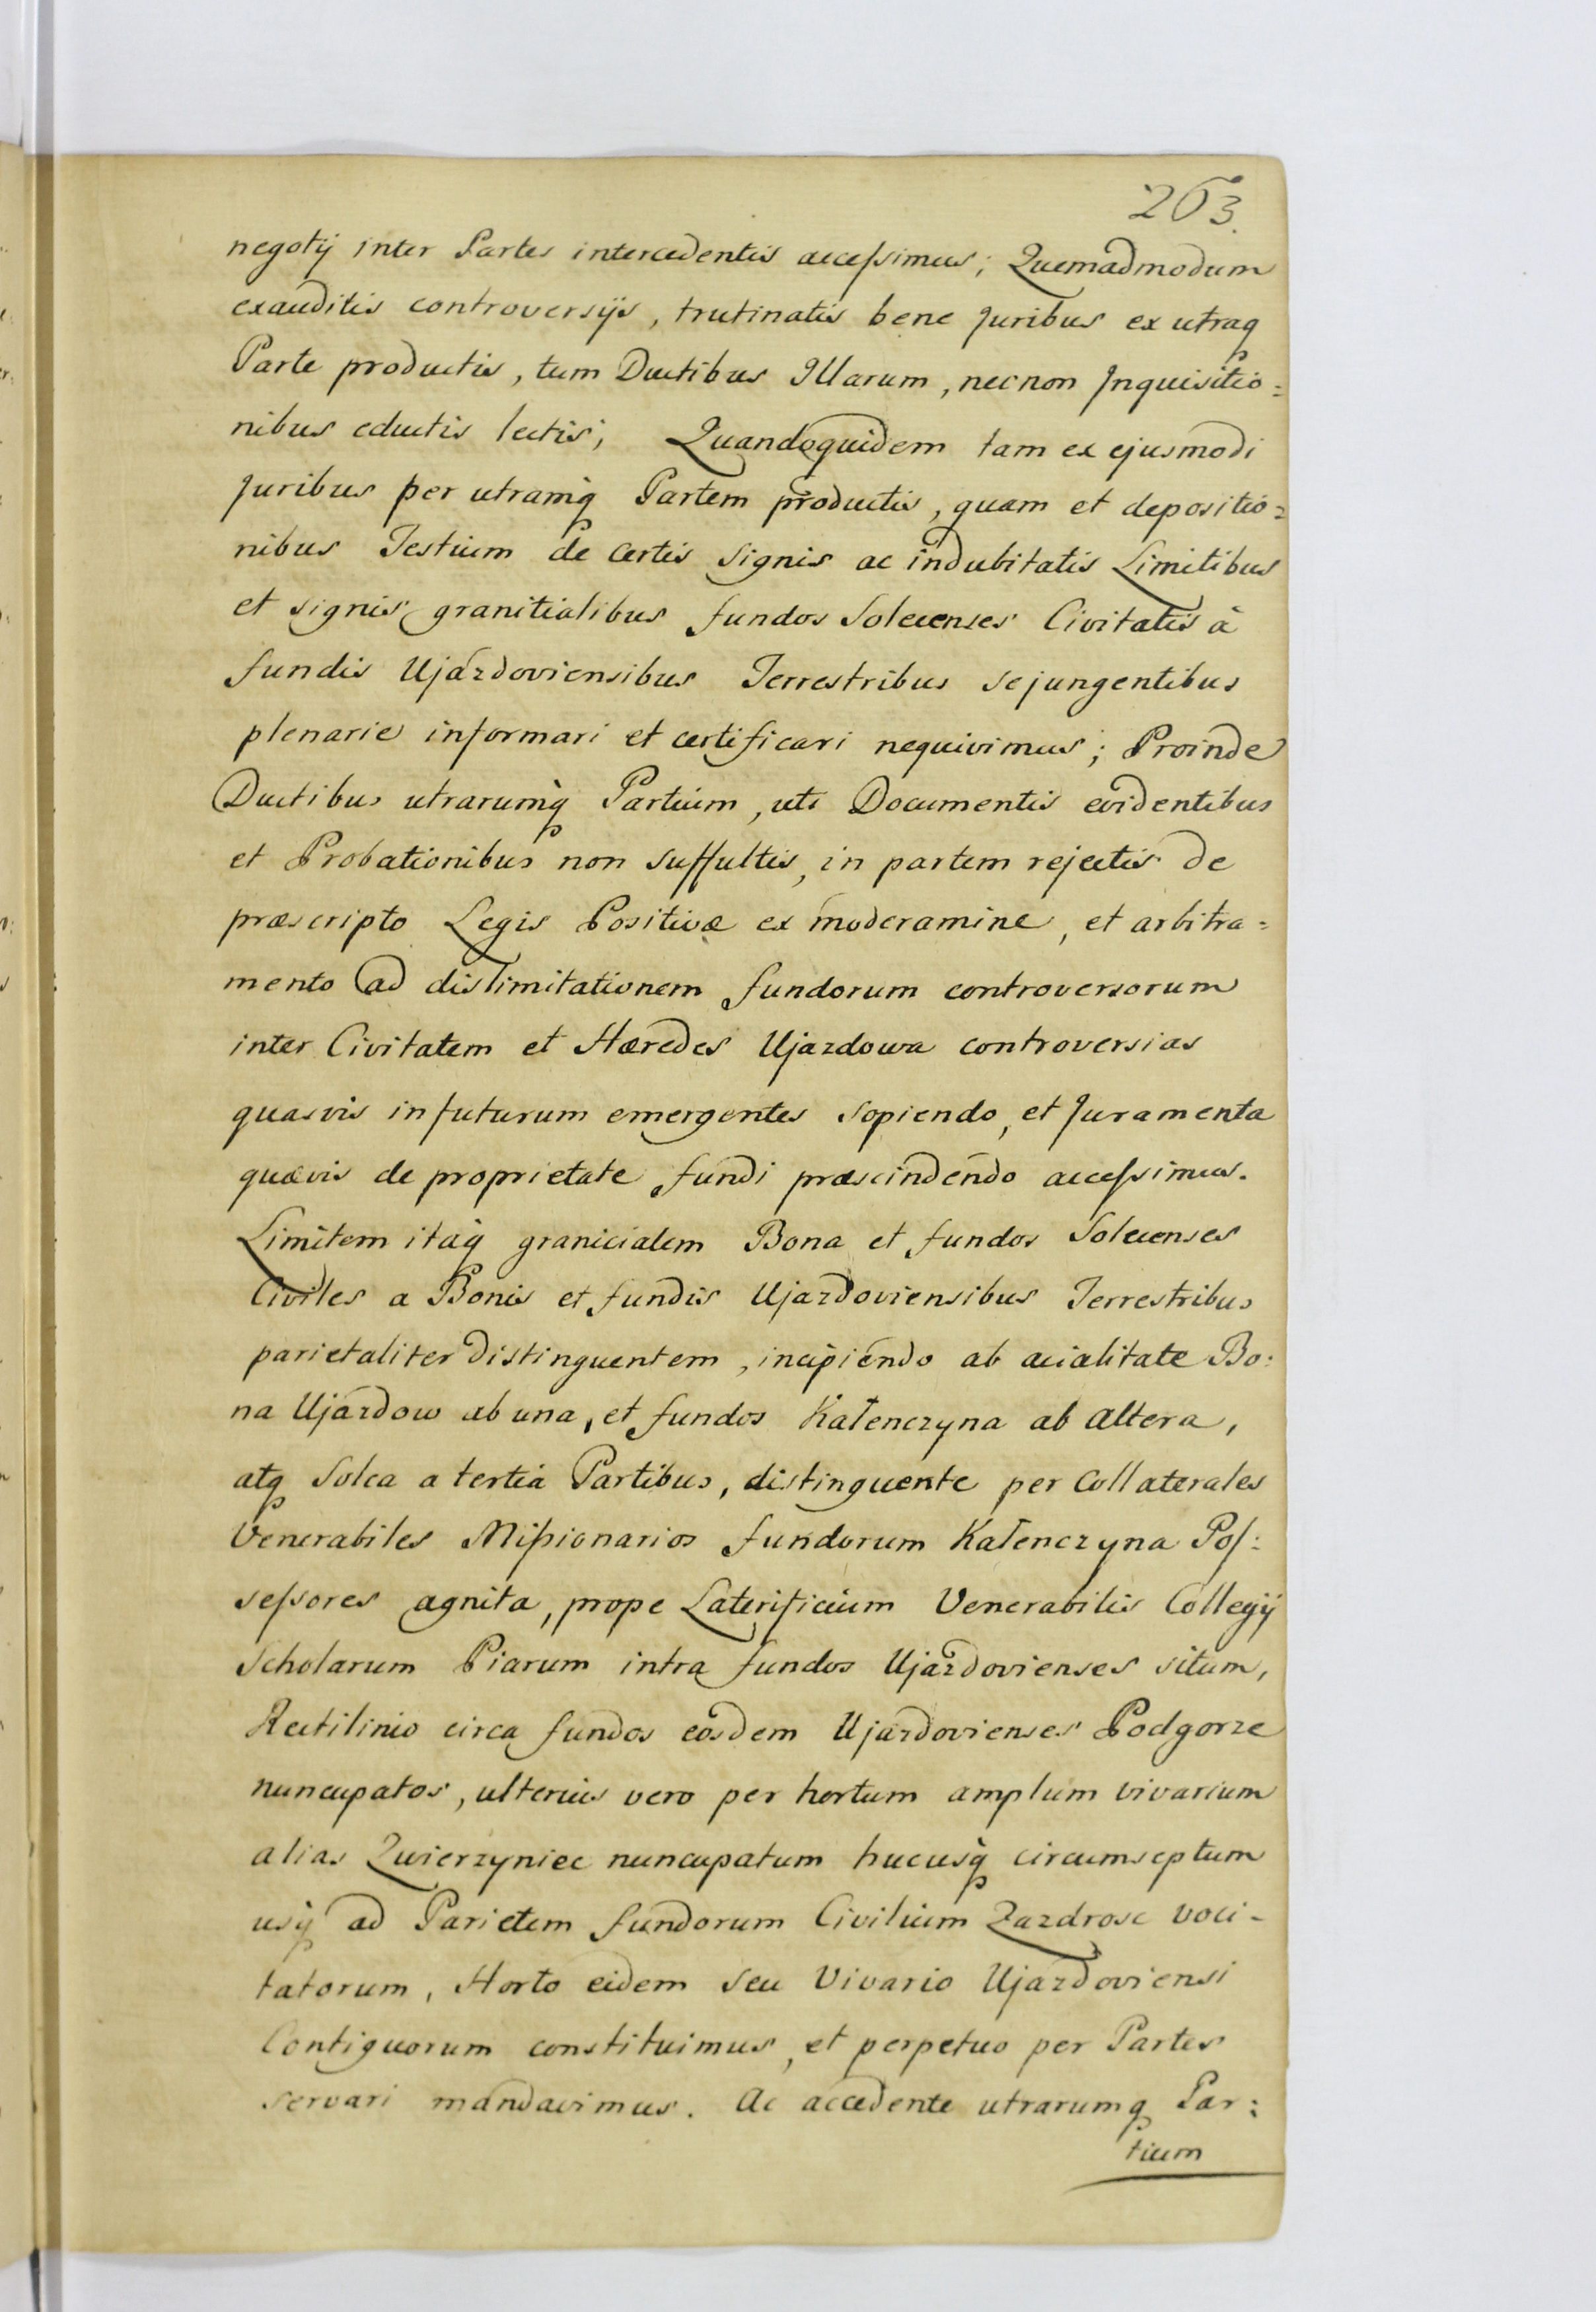 263.
negotij inter Partes intercedentis accessimus; Quemadmodum
exauditis controversijs, trutinatis bene Juribus ex utraq
Parte productis, tum Ductibus Illarum, necnon Inquisitio=
nibus eductis lectis; Quandoquidem tam ex ejusmodi
Juribus per utramq̀ Partem productis, quam et depositio=
nibus Testium de certis signis ac indubitatis Limitibus
et signis granitialibus fundos Solecenses Civitatis à
fundis Ujazdoviensibus Terrestribus sejungentibus
plenarie informari et certificari nequivimus; Proinde
Ductibus utrarumq̀ Partium, uti Documentis evidentibus
et Probationibus non suffultis, in partem rejectis de
præscripto Legis Positivæ ex moderamine, et arbitra=
mento ad dislimitationem fundorum controversorum
inter Civitatem et Hæredes Ujazdowa controversias
quasvis in futurum emergentes sopiendo, et Juramenta
quævis de proprietate fundi præscindendo accessimus.
Limitem itaq̀ granicialem Bona et fundos Solecenses
Civiles a Bonis et fundis Ujazdoviensibus Terrestribus
parietaliter distinguentem, incipiendo ab acialitate Bo:
na Ujazdow ab una, et fundos Kałenczyna ab altera,
atq Solca a tertia Partibus, distinguente per Collaterales
Venerabiles Missionarios fundorum Kałenczyna Pos:
sessores agnita, prope Laterificium Venerabilis Collegij
Scholarum Piarum intra fundos Ujazdovienses situm,
Rectilinio circa fundos eosdem Ujazdovienses Podgorze
nuncupatos, ulterius vero per hortum amplum vivarium
alias Zwierzyniec nuncupatum hucusq̀ circumseptum
usq̀ ad Parietem fundorum Civilium Zazdrosc voci-
tatorum, Horto eidem seu Vivario Ujazdoviensi
Contiguorum constituimus, et perpetuo per Partes
servari mandavimus. Ac accedente utrarumq Par:
tium